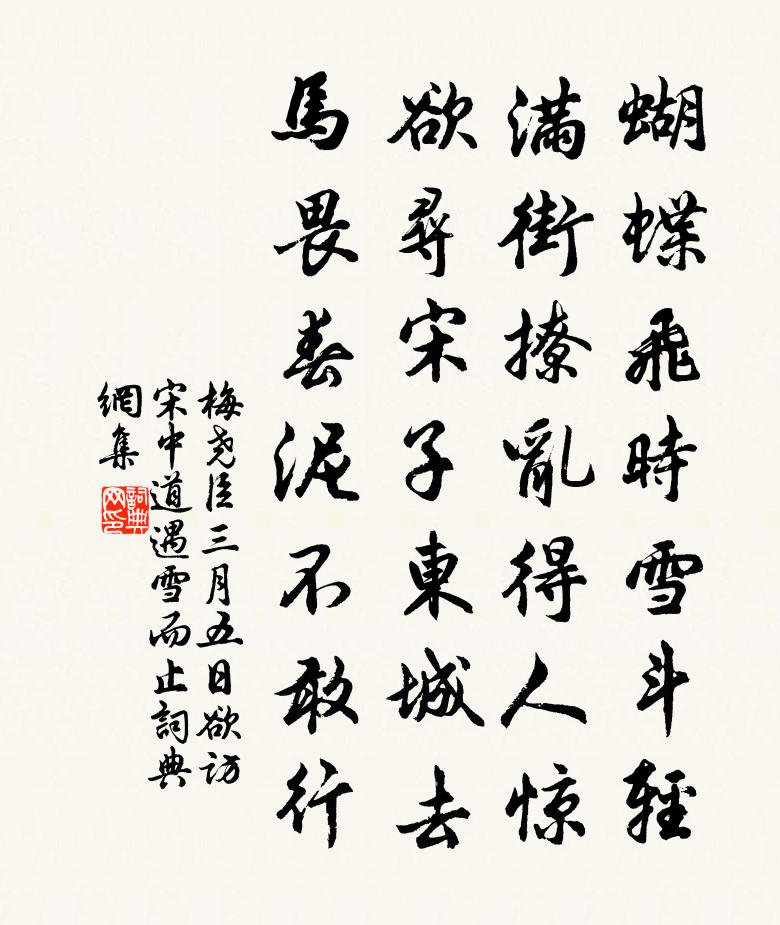 蝴蝶飛時雪斗輕
滿街撩亂得人惊
欲尋宋子東城去
馬畏春泥不敢行
梅尧臣三月五日欲訪
宋中道遇雪而止詞典
網集
詞典
网印